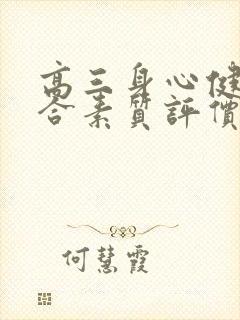 高三身心健
合素質評價
何慧霞